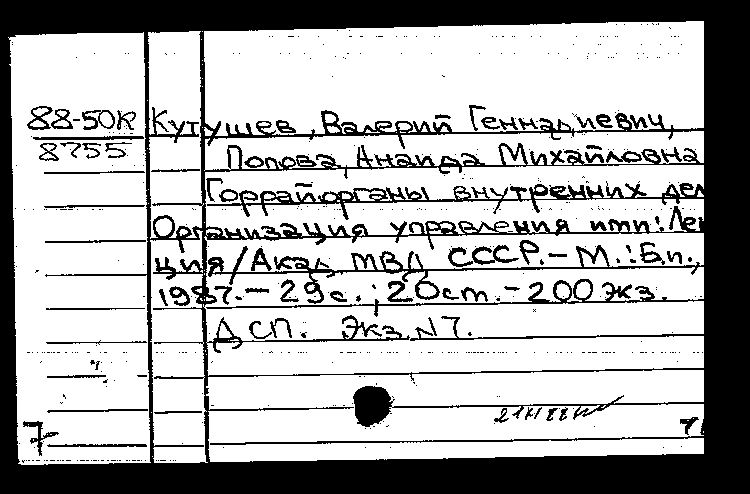 88-50К Кутушев, Валерий Геннадиевич,
8755 Попова, Анаида Михайловна
Горрайорганы внутренних дел
Организация управления ими: Лек
ция/Акад МВД СССР.- М.: Б.и.,
1987.- 29с.; 20см.- 200 экз.
ДСП. Экз. N7.
7